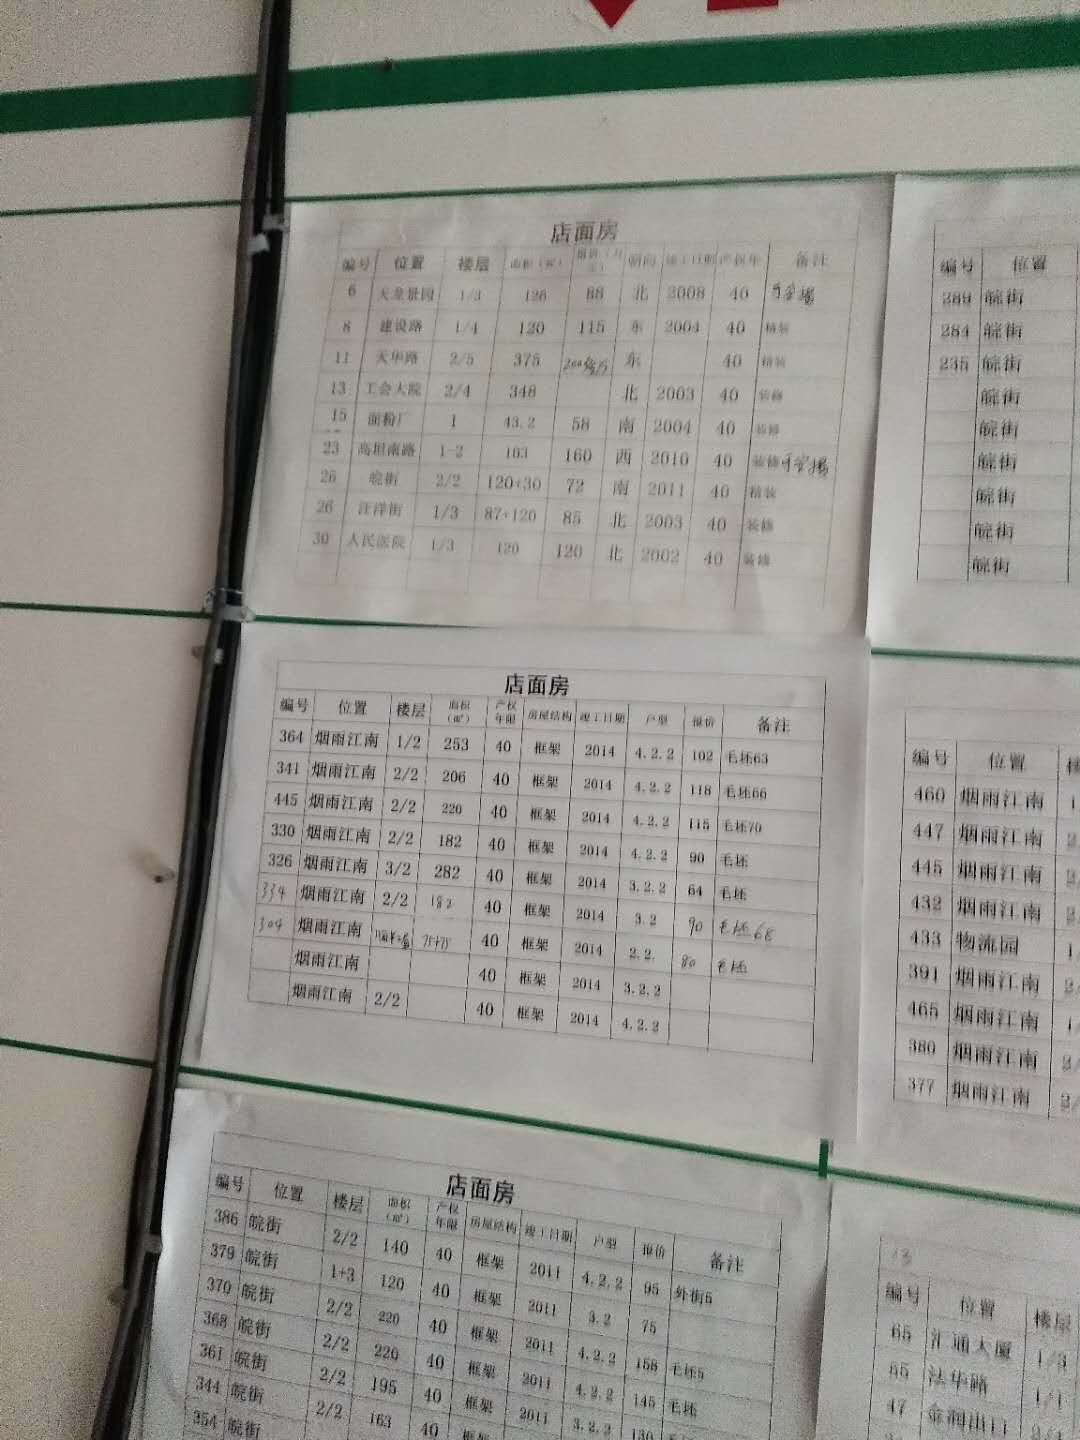 店面房
编号 位置 楼层 面积(㎡) 朝向 竣工日期 产权年 备注
6 天龙景园 1/3 126 88 北 2008 40
8 建设路 1/4 120 115 东 2004 40 精装
11 天华路 2/5 375 东 40 精装
13 工会大院 2/4 348 北 2003 40 装修
15 面粉厂 1 43.2 58 南 2004 40 装修
23 高坦南路 1-2 103 160 西 2010 40 装修
26 皖街 2/2 120+30 72 南 2011 40 精装
26 汪洋街 1/3 87+120 85 北 2003 40 装修
30 人民医院 1/3 120 120 北 2002 40 装修
编号 位置
289 皖街
284 皖街
235 皖街
皖街
皖街
皖街
皖街
皖街
皖街
店面房
编号 位置 楼层 面积(㎡) 产权年限 房屋结构 竣工日期 户型 报价 备注
364 烟雨江南 1/2 253 40 框架 2014 4.2.2 102 毛坯63
341 烟雨江南 2/2 206 40 框架 2014 4.2.2 118 毛坯66
445 烟雨江南 2/2 220 40 框架 2014 4.2.2 115 毛坯70
330 烟雨江南 2/2 182 40 框架 2014 4.2.2 90 毛坯
326 烟雨江南 3/2 282 40 框架 2014 3.2.2 64 毛坯
334 烟雨江南 2/2 182 40 框架 2014 3.2 90 毛坯68
304 烟雨江南 75+75 40 框架 2014 2.2. 80 毛坯
烟雨江南 40 框架 2014 3.2.2
烟雨江南 2/2 40 框架 2014 4.2.2
编号 位置
460 烟雨江南
447 烟雨江南
445 烟雨江南
432 烟雨江南
433 物流园
391 烟雨江南
465 烟雨江南
380 烟雨江南
377 烟雨江南
店面房
编号 位置 楼层 面积(㎡) 产权年限 房屋结构 竣工日期 户型 报价 备注
386 皖街 2/2 140 40 框架 2011 4.2.2 95 外街5
379 皖街 1+3 120 40 框架 2011 3.2 75
370 皖街 2/2 220 40 框架 2011 4.2.2 158 毛坯5
368 皖街 2/2 220 40 框架 2011 4.2.2 145 毛坯
361 皖街 2/2 195 40 框架 2011 3.2.2 130
344 皖街 2/2 163 40 框架
354 皖街
13
编号 位置 楼层
65 汇通大厦 1/3
55 法华路 1/1
47 金润出口